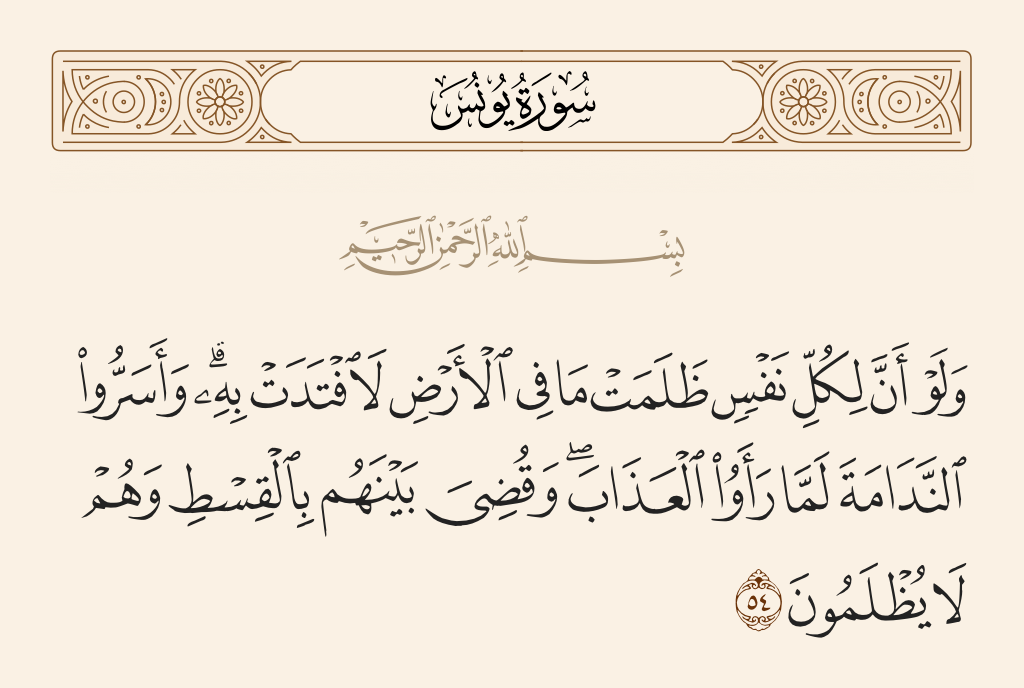 سُورَةُ يُونُسَ
بِسْمِ ٱللَّهِ ٱلرَّحْمَٰنِ ٱلرَّحِيمِ
وَلَوْ أَنَّ لِكُلِّ نَفْسٍ ظَلَمَتْ مَا فِى ٱلْأَرْضِ لَٱفْتَدَتْ بِهِۦ ۗ وَأَسَرُّوا۟
ٱلنَّدَامَةَ لَمَّا رَأَوُا۟ ٱلْعَذَابَ ۖ وَقُضِىَ بَيْنَهُم بِٱلْقِسْطِ وَهُمْ
لَا يُظْلَمُونَ ٥٤